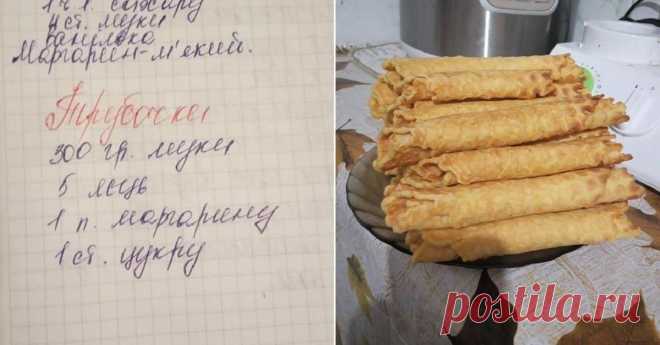 4 ст. муки
ванилька
Маргарин-м'який.
Трубочки
300 гр. муки
5 яєць
1 п. маргарину
1 ст. цукру
postila.ru